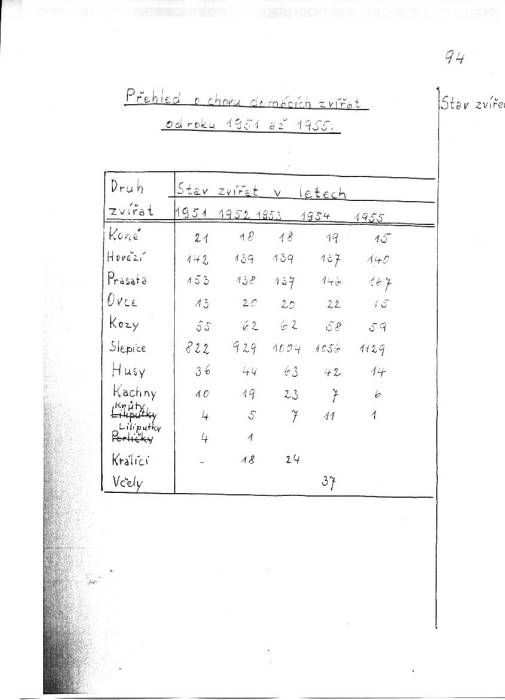 94
Přehled o chovu domácích zvířat
od roku 1951 až 1955.
Stav zvířec
Druh zvířat Stav zvířat v letech
1951 1952 1953 1954 1955
Koně 21 18 18 19 15
Hovězí 142 139 139 137 140
Prasata 153 138 137 146 167
Ovce 13 20 20 22 15
Kozy 55 62 62 58 59
Slepice 822 929 1004 1056 1129
Husy 36 44 63 42 14
Kachny 10 19 23 7 6
Krůty
Liliputky 4 5 7 11 1
Liliputky
Perličky 4 1
Králíci - 18 24
Včely 37